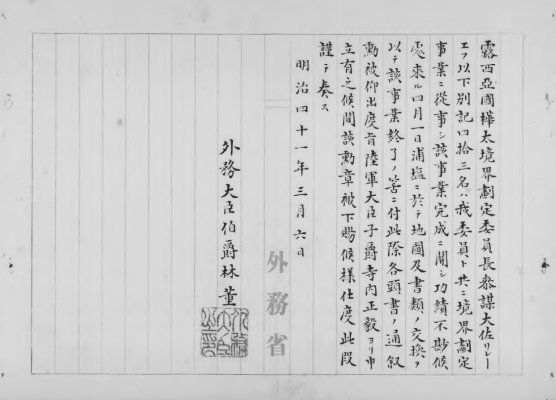 露西亞國樺太境界劃定委員長参謀大佐リレー
エフ以下別記四拾三名ハ我委員ト共ニ境界劃定
事業ニ從事シ該事業完成ニ関シ功績不尠候
處來ル四月一日浦塩ニ於テ地圖及書類ノ交換ヲ
以テ該事業終了ノ筈ニ付此際各頭書ノ通叙
勲被仰出度旨陸軍大臣子爵寺内正毅ヨリ申
立有之候間該勲章被下賜候様仕度此段
謹テ奏ス
明治四十一年三月六日
外務大臣伯爵林董
外務省